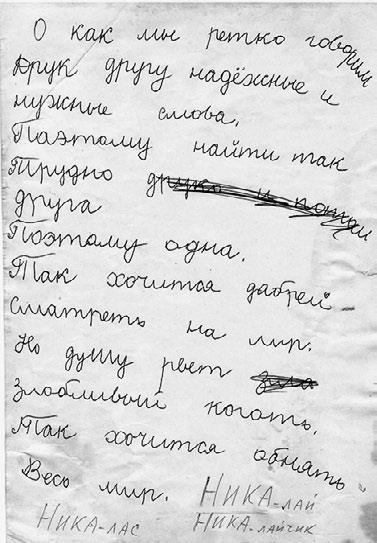 О как мы ретко говорим
Друк другу надёжные и
нужные слова.
Паэтому найти так
Трудно
друга
Поэтому одна.
Так хочится дабрей
сматреть на мир.
Но душу рвет
Злобливый коготь.
Так хочится обнять
Весь мир.
НИКА-ЛАЙ
НИКА-ЛАС НИКА-ЛАЙЧИК